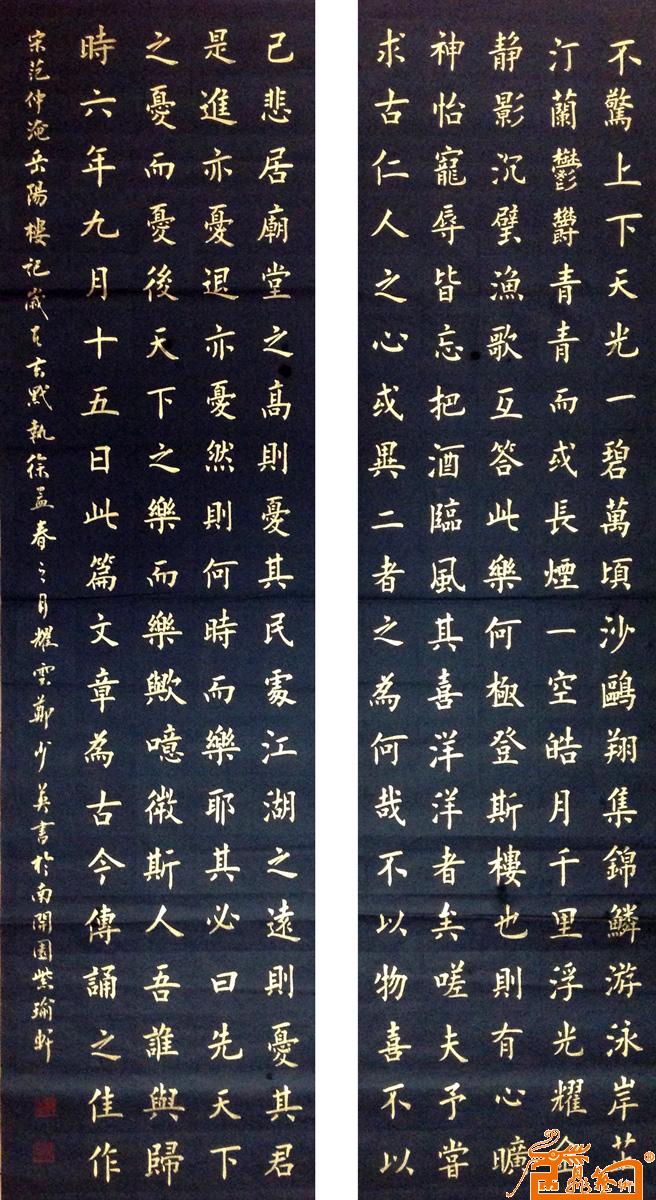 不驚上下天光一碧萬頃沙鷗翔集錦鱗游泳岸芷
汀蘭鬱欝青青而或長煙一空皓月千里浮光耀金
静影沉璧漁歌互答此樂何極登斯樓也則有心曠
神怡寵辱皆忘把酒臨風其喜洋洋者矣嗟夫予嘗
求古仁人之心或異二者之為何哉不以物喜不以
己悲居廟堂之高則憂其民處江湖之遠則憂其君
是進亦憂退亦憂然則何時而樂耶其必曰先天下
之憂而憂後天下之樂而樂歟噫微斯人吾誰與歸
時六年九月十五日此篇文章為古今傳誦之佳作
宋范仲淹岳陽樓記歲在玄黓執徐孟春之月耀雲鄭少英書於南開園紫瑜軒